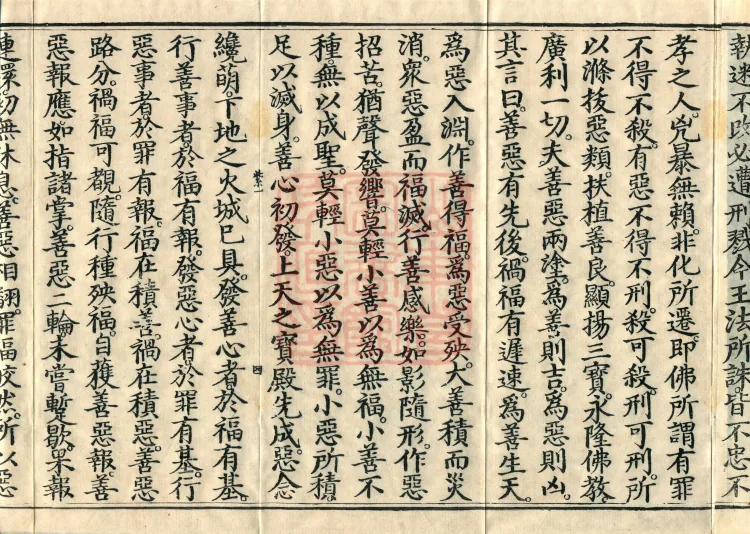 報遂不改必遭刑戮今王法所誅皆不忠不
孝之人。兇暴無賴。非化所遷。即佛所謂有罪
不得不殺。有惡不得不刑。殺可殺。刑可刑。所
以滌拔惡類。扶植善良。顯揚三寶。永隆佛教。
廣利一切。夫善惡兩塗。為善則吉。為惡則凶。
其言曰。善惡有先後。禍福有遲速。為善生天。
為惡入淵。作善得福。為惡受殃。大善積而災
消。衆惡盈而福滅。行善感樂。如影隨形。作惡
招苦。猶聲發響。莫輕小善以為無福。小善不
種。無以成聖。莫輕小惡以為無罪。小惡所積
足以滅身。善心初發。上天之寶殿先成。惡念
纔萌。下地之火城已具。發善心者。於福有基。
四
行善事者。於福有報。發惡心者。於罪有基。行
惡事者。於罪有報。福在積善。禍在積惡。善惡
路分。禍福可覩。隨行種殃福。自獲善惡報。善
惡報應。如指諸掌。善惡二輪。未嘗暫歇。果報
連環。初無休息。善惡相翻。罪福皎然。所以惡